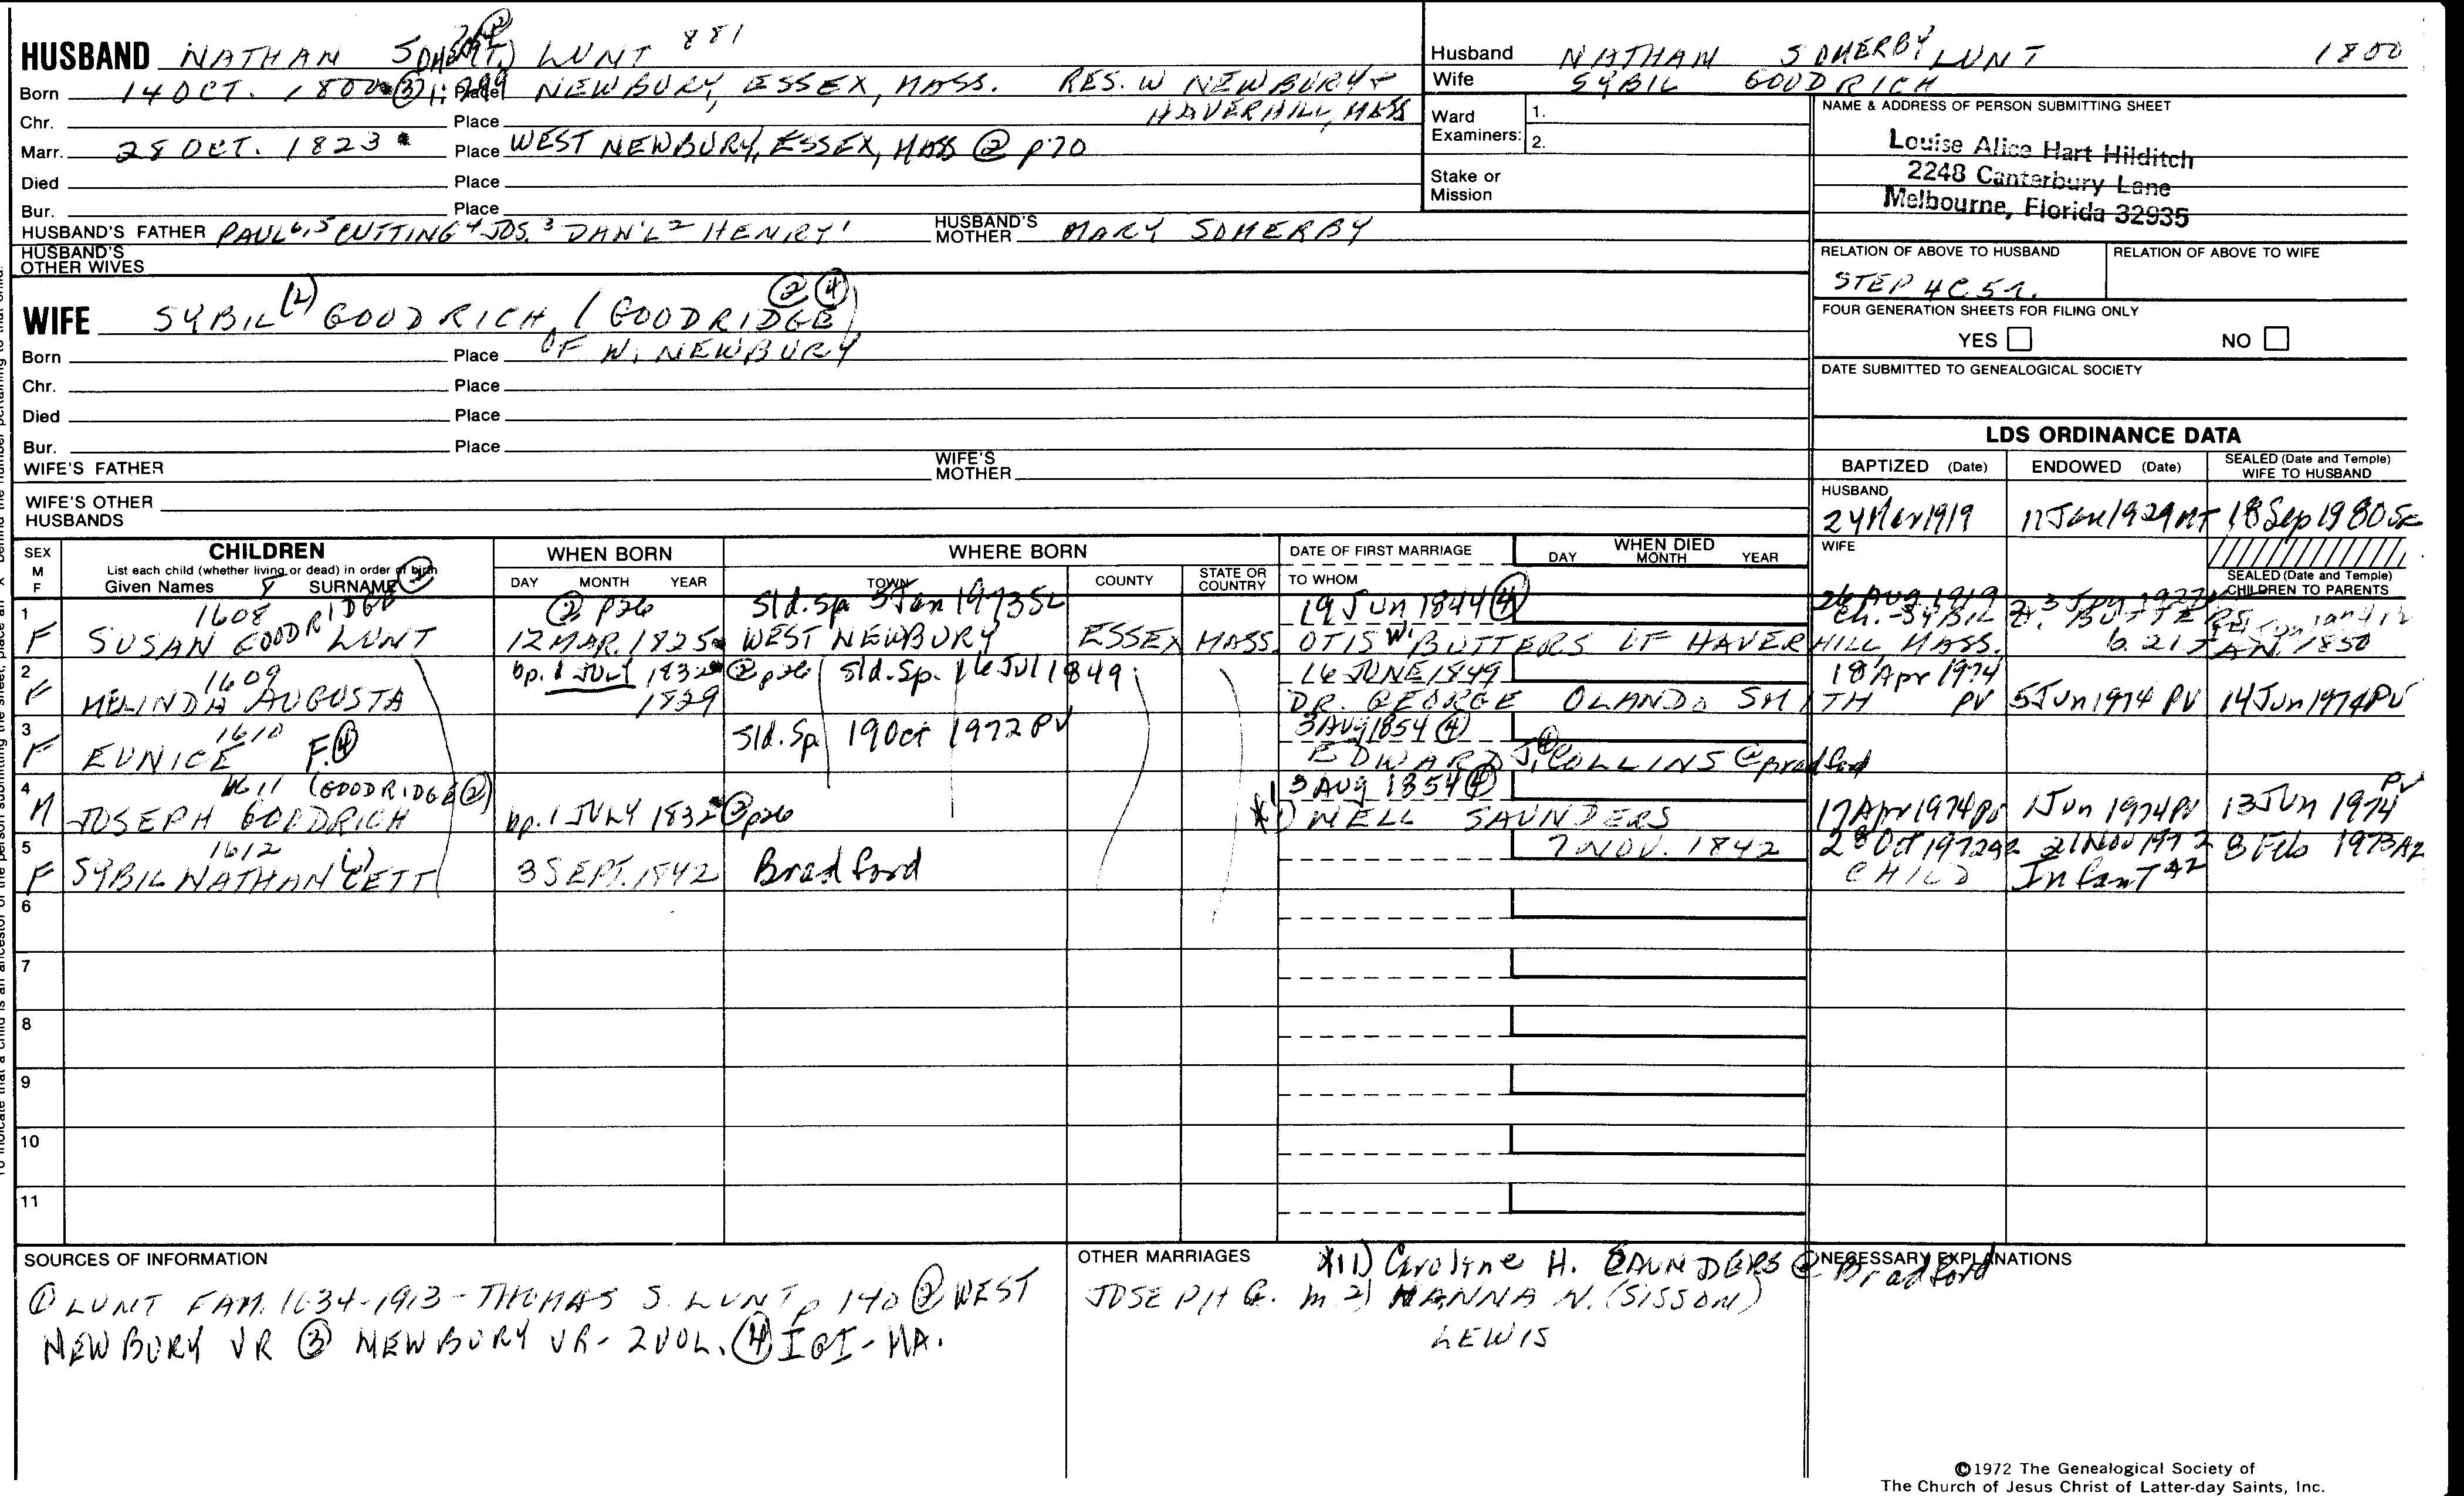 HUSBAND NATHAN LUNT 881
Born 14 OCT. 1800 Place NEWBURY, ESSEX, MASS. RES. W NEWBURY
Chr. Place HAVERHILL, MASS
Marr. 28 OCT. 1823 Place WEST NEWBURY, ESSEX, MASS ② p70
Died Place
Bur. Place
HUSBAND'S FATHER PAUL 6,5 CUTTING 4 JOS. 3 DAN'L 2 HENRY 1 HUSBAND'S MOTHER MARY SOMERBY
HUSBAND'S OTHER WIVES
WIFE SYBIL (2) GOODRICH, (GOODRIDGE) ② ④
Born Place OF W. NEWBURY
Chr. Place
Died Place
Bur. Place
WIFE'S FATHER WIFE'S MOTHER
WIFE'S OTHER HUSBANDS
Husband NATHAN SOMERBY LUNT 1800
Wife SYBIL GOODRICH
Ward Examiners: 1.
2.
Stake or Mission
NAME & ADDRESS OF PERSON SUBMITTING SHEET
Louise Alice Hart Hilditch
2248 Canterbury Lane
Melbourne, Florida 32935
RELATION OF ABOVE TO HUSBAND RELATION OF ABOVE TO WIFE
STEP 4C 5r.
FOUR GENERATION SHEETS FOR FILING ONLY
YES NO
DATE SUBMITTED TO GENEALOGICAL SOCIETY
LDS ORDINANCE DATA
BAPTIZED (Date) ENDOWED (Date) SEALED (Date and Temple) WIFE TO HUSBAND
HUSBAND
24 Mar 1919 11 Jan 1929 18 Sep 1980 SL
WIFE
SEALED (Date and Temple) CHILDREN TO PARENTS
26 AUG 1919
SEX M F
CHILDREN
List each child (whether living or dead) in order of birth
Given Names SURNAME
WHEN BORN
DAY MONTH YEAR
WHERE BORN
TOWN COUNTY STATE OR COUNTRY
DATE OF FIRST MARRIAGE
TO WHOM
WHEN DIED
DAY MONTH YEAR
1 1608 ② p26 Sld. Sp 3 Jan 1973 SL 19 Jun 1844 ④
F SUSAN GOODRIDGE LUNT 12 MAR. 1825 WEST NEWBURY ESSEX MASS. OTIS W. BUTTERS OF HAVERHILL MASS. b. 21 JAN. 1850
2 1609 bp. 1 JULY 1832 ② p26 Sld. Sp. 16 Jul 1849 16 JUNE 1849 18 Apr 1974
F MELINDA AUGUSTA 1829 DR. GEORGE OLANDO SMITH PV 5 Jun 1974 PV 14 Jun 1974 PV
3 1610 Sld. Sp 19 Oct 1972 PV 3 Aug 1854 ④
F EUNICE F. ④ EDWARD J. COLLINS @ Bradford
4 1611 (GOODRIDGE ②) 3 AUG 1854 ④
M JOSEPH GOODRICH bp. 1 JULY 1832 ② p26 NELL SAUNDERS 17 Apr 1974 PV 1 Jun 1974 PV 13 Jun 1974 PV
5 1612 7 NOV. 1842 28 Oct 1972 AZ 21 Nov 1972 8 Feb 1973 AZ
F SYBIL NATHAN 3 SEPT. 1842 Bradford CHILD Infant AZ
6
7
8
9
10
11
SOURCES OF INFORMATION
① LUNT FAM. 1634-1913 - THOMAS S. LUNT p 140 ② WEST
NEWBURY VR ③ NEWBURY VR - 2 VOL. ④ IGI - MA.
OTHER MARRIAGES
*1) Caroline H. SAUNDERS @ Bradford
JOSEPH G. m 2) HANNA N. (SISSON)
LEWIS
NECESSARY EXPLANATIONS
©1972 The Genealogical Society of
The Church of Jesus Christ of Latter-day Saints, Inc.